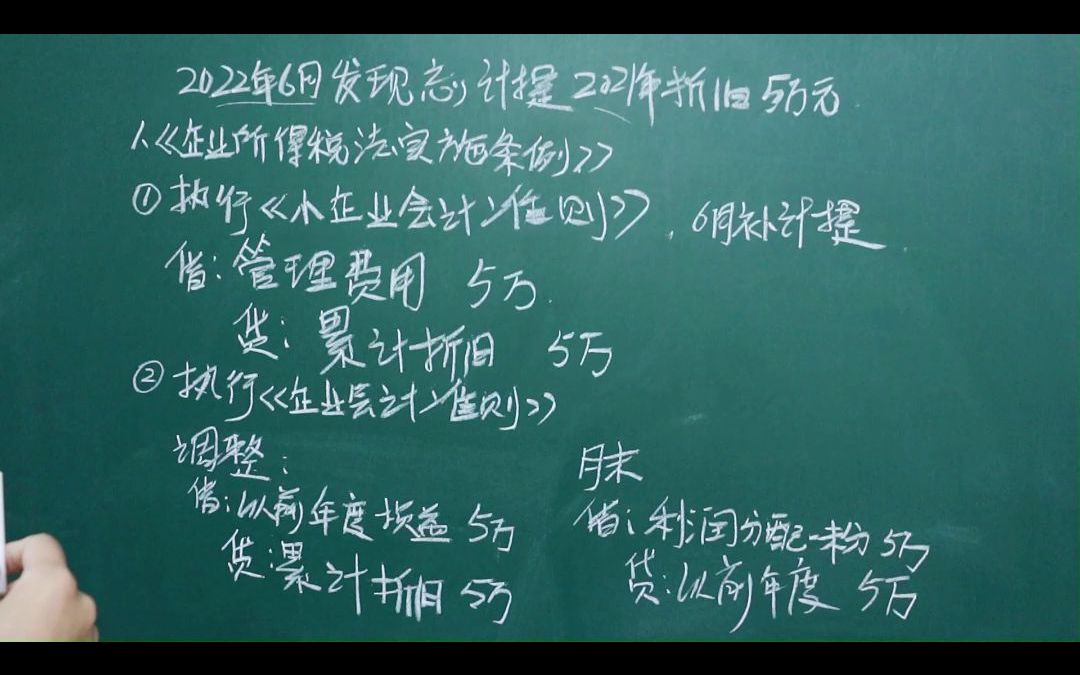 2022年6月发现忘计提2021年折旧5万元
1、《企业所得税法实施条例》
①执行《小企业会计准则》,6月补计提
借:管理费用 5万.
贷:累计折旧 5万
②执行《企业会计准则》
调整:
借:以前年度损益 5万
贷:累计折旧 5万
月末
借:利润分配-未分 5万
贷:以前年度 5万